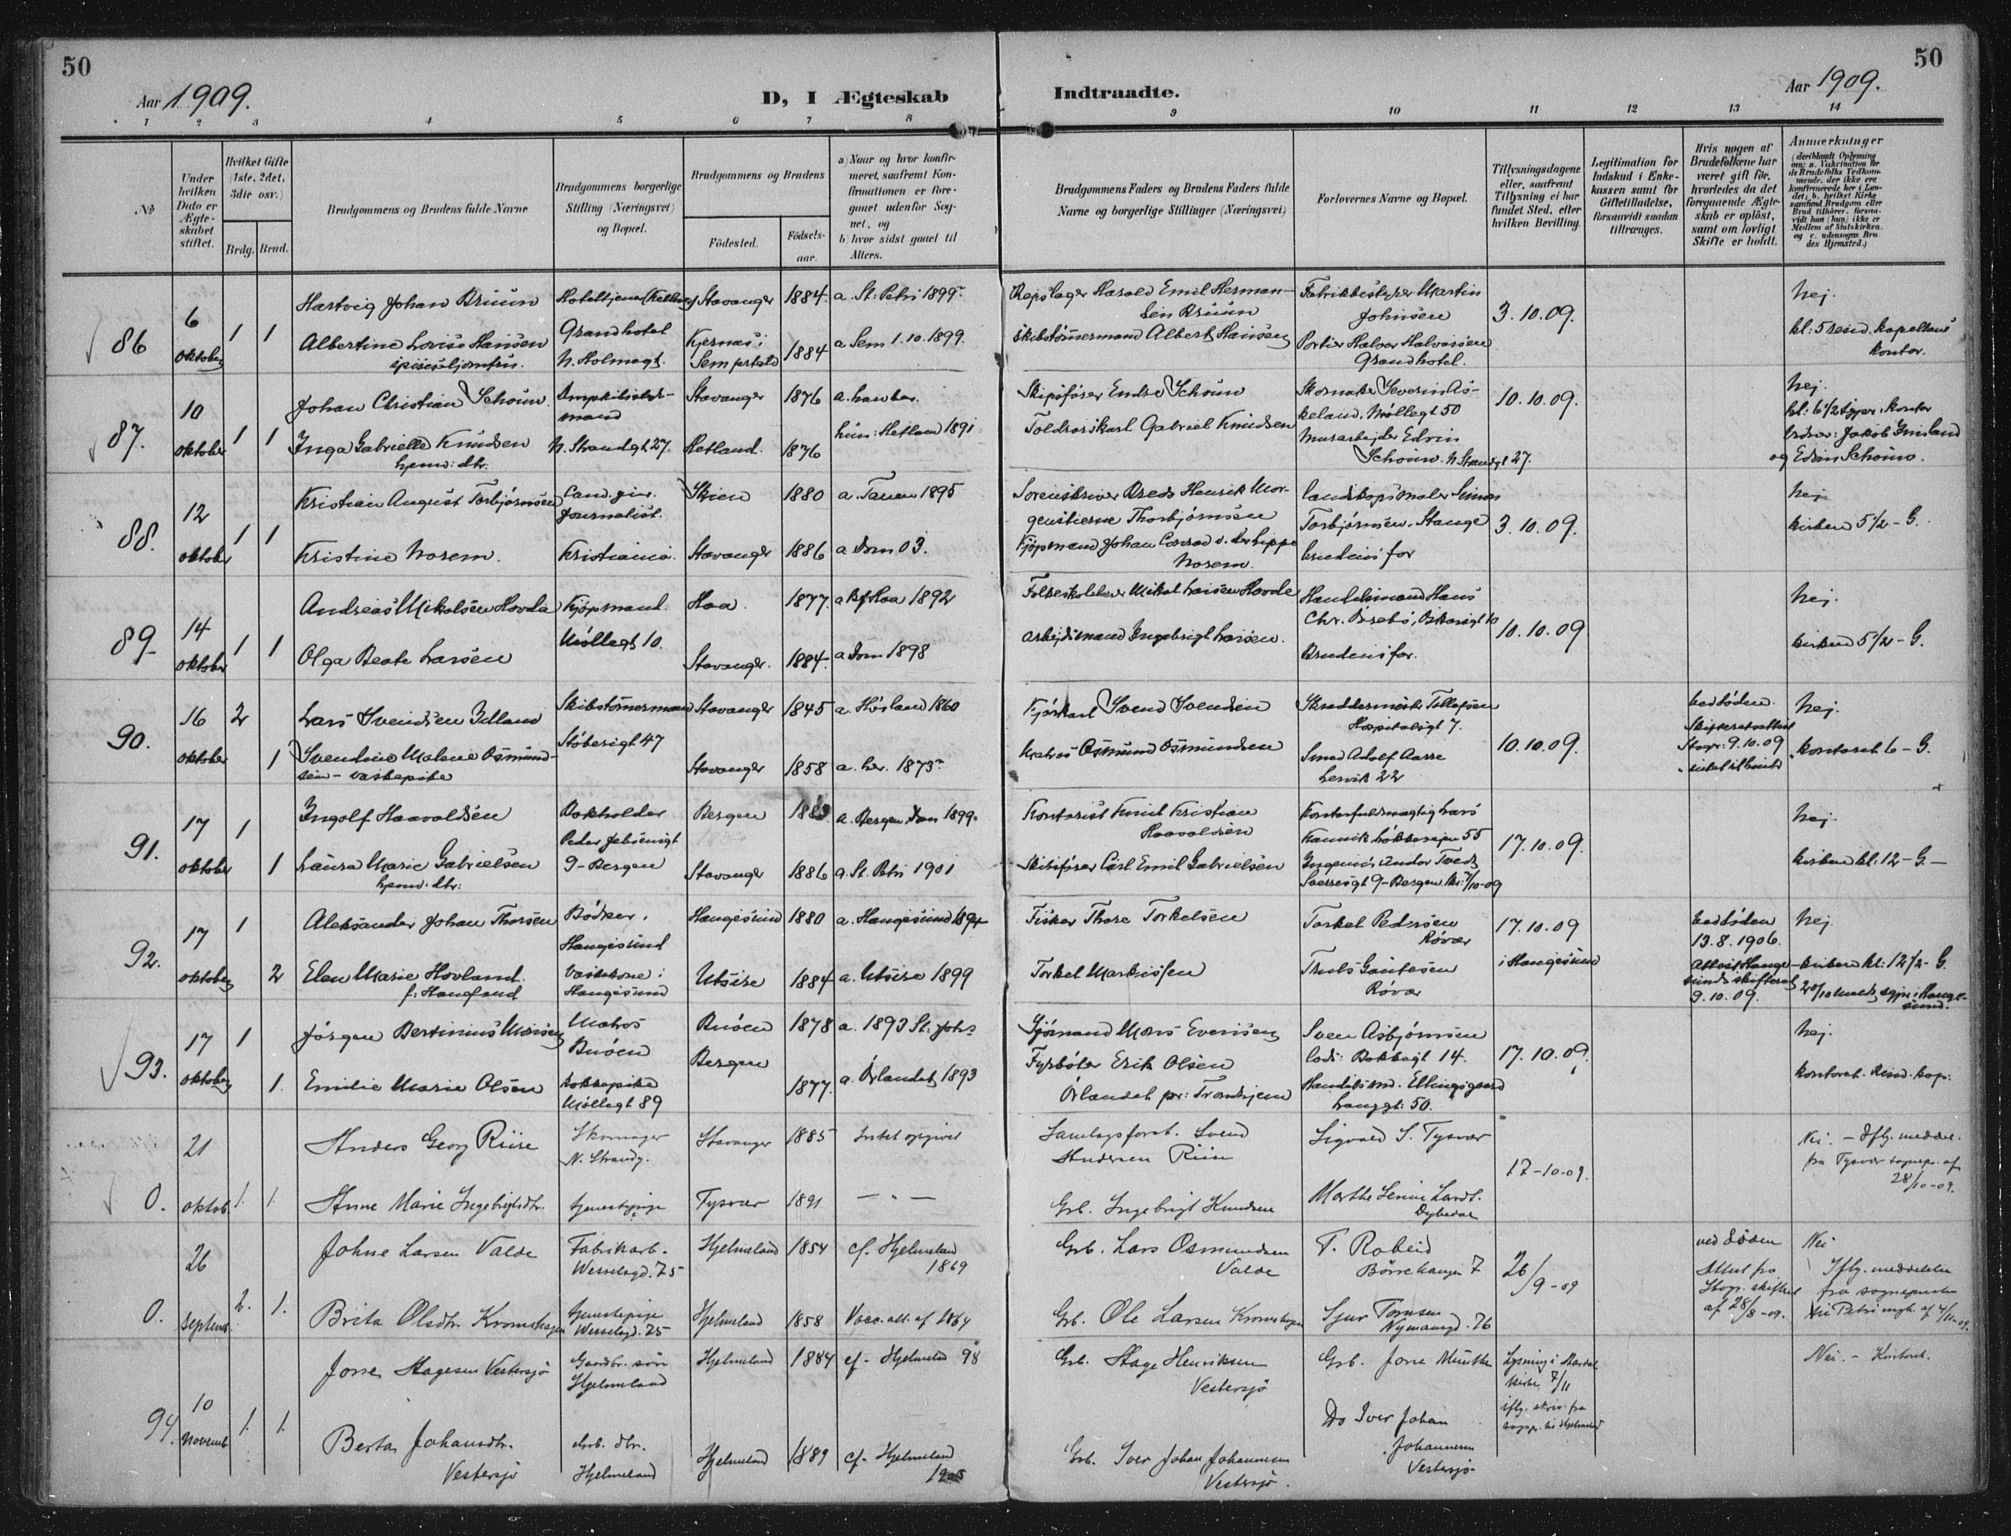 50
Aar 1909.
D, I Ægteskab
Indtraadte.
Aar 1909.
50
1 2 3 4 5 6 7 8 9 10 11 12 13 14
No
Under hvilken Dato er Ægteskabet stiftet.
Hvilket Gifte (1ste, 2det, 3die osv.)
Brdg. Brud.
Brudgommens og Brudens fulde Navne
Brudgommens borgerlige Stilling (Næringsvei) og Bopæl.
Brudgommens og Brudens
Fødested.
Fødsels-aar.
a) Naar og hvor konfirmeret, saafremt Konfirmationen er foregaaet udenfor Sognet, og
b) hvor sidst gaaet til Alters.
Brudgommens Faders og Brudens Faders fulde Navne og borgerlige Stillinger (Næringsvei)
Forlovernes Navne og Bopæl.
Tillysningsdagene eller, saafremt Tillysning ei har fundet Sted, efter hvilken Bevilling.
Legitimation for Indskud i Enkekassen samt for Giftetilladelse, forsaavidt saadan tiltrænges.
Hvis nogen af Brudefolkene har været gift før, hvorledes da det foregaaende Ægteskab er opløst, samt om lovligt Skifte er holdt.
Anmærkninger
86
6 oktober
1 1
Hartvig Johan Bruun
Albertine Lovise Hansen
Grandhotel
N. Holmegt.
Stavanger
Kjernæs i Sem
1884
1884
a. St: Petri 1899
a Sem 1.10.1899.
Repslager Harald Emil Hermansen Bruun
Skibstømmermand Albert Hansen
Fabrikbestyrer Martin Johnsen
Portier Halvor Halvorsen
Grandhotel.
3.10.09.
Nej.
kl: 5 resid. kapellans kontor.
87.
10 oktober
1 1
Johan Christian Schoun
Inga Gabrielle Knudsen
hjemv: dtr.
N. Strandgt 27.
Stavanger
Hetland.
1876
1876
hun: Hetland 1891
Skipsfører Endre Schoun
Gabriel Knudsen
Skomaker Severin Askeland, Møllegt 50
Murarbejder Edvin Schoun. N Strandgt 27.
10.10.09.
Nej.
kl: 6 1/2
og Edvin Schoun.
88.
12 oktober
1 1
Kristian August Torbjørnsen
Kristine Norem.
Cand. jur.
Journalist.
Kristiania.
Skien
Stavanger
1880
1886
a. 1895
a Dom 03.
Thorbjørnsen
Kjøpmand Johan Conrad v. der Lippe Norem.
Landskapsmaler Simon Torbjørnsen, Stange
Brudens far
3.10.09.
Nej
kirken 5 1/2 - G.
89
14 oktober
1 1
Andreas Mikalsen Hovda
Olga Beate Larsen
Kjøpmand.
Møllegt 10.
Haa.
Stavanger.
1877
1884
a Haa 1892
a Dom 1898
Mikal Larsen Hovda
Arbejdsmand Ingebrigt Larsen.
Handelsmand Hans Chr.
Brudens far.
10.10.09
Nej.
kirken 5 1/2 - G.
90.
16 oktober
2
1
Lars Svendsen Idland
Svendine Malene Osmundsen - vaskepike
Skibstømermand
Støberigt 47
Stavanger
Stavanger
1845
1858
a. Høsland 1860
a. her. 1873
Svend Svendsen
Matros Osmund Osmundsen
Skreddermester Tollefsen
Hospitalsgt 7.
Smed Adolf Aasse
Lervik 22
10.10.09.
ved døden
Skifteretsattest
Stvgr: 9.10.09
Nej.
kontoret 6 - G.
91.
17 oktober
1
1
Ingolf Haavoldsen
Laura Marie Gabrielsen
hjemv: dtr:
Bokholder
9 - Bergen
Bergen
Stavanger
1883
1886
a. Bergen Dom 1899
a. St. Petri 1901
Kontorist Knut Kristian Haavoldsen
Skibsfører Carl Emil Gabrielsen
Kontorfuldmægtig Lars
Ingeniør Andor Tvedt
Sverresgt 9 - Bergen
17.10.09.
Nej.
kirken kl. 12 - G -
92.
17 oktober
1
2
Aleksander Johan Thorsen
Elen Marie Hovland
f: Haugland
Bødker.
Haugesund
Vaskekone i Haugesund
Haugesund
Utsire
1880
1884
a. Haugesund 1894
a. Utsire 1899
Fisker Thore Torkelsen
Torkel Markussen
Torkel Pedersen
Røvær
Truls Gautesen
Røvær
17.10.09
i Haugesund
ved døden
13.8.1906.
Attest Haugesunds skifteret
9.10.09.
Nej.
kirken kl. 12 1/2 - G.
93.
17 oktober
1
1.
Jørgen Bertinius Monsen
Emilie Marie Olsen
Matros
Buøen
Kokkepike
Møllegt 89
Buøen
Bergen
1878
1877.
a. 1893 St. Johs
a. Ørlandet 1893
Sjømand Mons Evensen
Fyrbøter Erik Olsen
Ørlandet pr: Trondhjem
Sven Asbjørnsen
Lods: Bakkegt 14.
Handelsm. Ellingsgaard
Langgt: 50.
17.10.09.
Nej.
kontoret. Resid. kap:
0.
21 oktob.
1. 1.
Anders Georg Riise
Anne Marie Ingebrigtsdtr.
Skomager
N. Strandg.
tjenestepige
Stavanger
Tysvær
1885
1891
Intet opgivet
— " —
Svend Andersen Riise
Grb. Ingebrigt Knudsen
Sigvald S. Tysvær
Marthe
17-10-09.
Nei. - Iflg. meddel. fra Tysvær sognepr. af 28/10-09.
0.
26 Septemb.
2. 1.
Johne Larsen Valde
Brita Olsdtr. Kromshagen
Fabrikarb.
Wesselsgd. 75
tjenestepige
Wesselsgd. 25
Hjelmeland
Hjelmeland
1854
1858
cf. Hjelmeland 1869
Vacc. att. af 1864
Grb. Lars Osmundsen Valde
Grb. Ole Larsen Kromshagen
T. Robeid
Børrehaugen 7
Sjur Tomsen
Nymansgd. 76
26/9-09
ved Døden
Attest fra Stvgr. skifteret af 28/8-09.
Nei
Iflg. meddelelse fra sognepresten til Petri mgh. af 4/11-09.
94.
10 Novemb.
1. 1.
Jone Hagesen Vestersjø
Berta Johansdtr. Vestersjø
Gaardbr. søn
Hjelmeland
Grb. dtr.
Hjelmeland
Hjelmeland
Hjelmeland
1884
1889
cf. Hjelmeland 98
cf. Hjelmeland 1905
Grb. Hage Henriksen Vestersjø
Grb. Iver Johan Johannesen Vestersjø.
Grb. Jone
Do Iver Johan Johannesen Vestersjø
Lysning i Aardal kirke 7/11
iflg. skriv. fra sognepr. til Hjelmeland
Nei. - Kontoret.